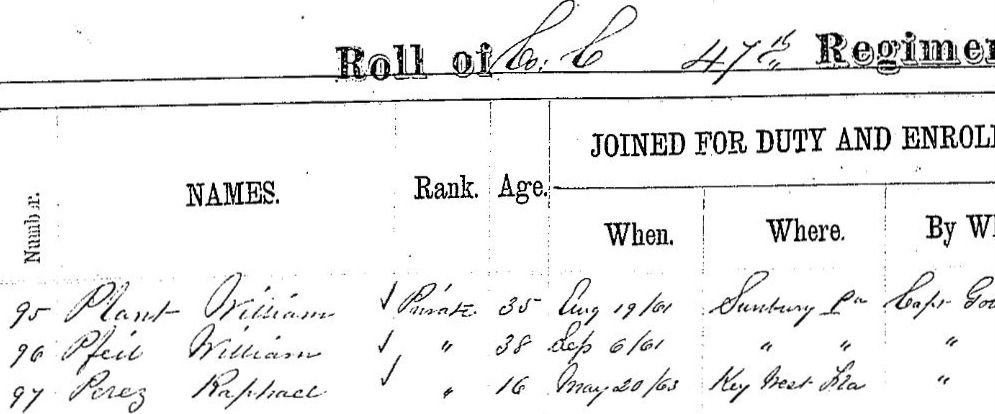 Roll of Co. C 47th Regimen
JOINED FOR DUTY AND ENROLL
Number. NAMES. Rank. Age.
When. Where. By W
95 Plant William ✓ Private 35 Aug 19/61 Sunbury Pa Capt Go
96 Pfeil William ✓ " 38 Sep 6/61 " " "
97 Perez Raphael ✓ " 16 May 20/63 Key West Fla "